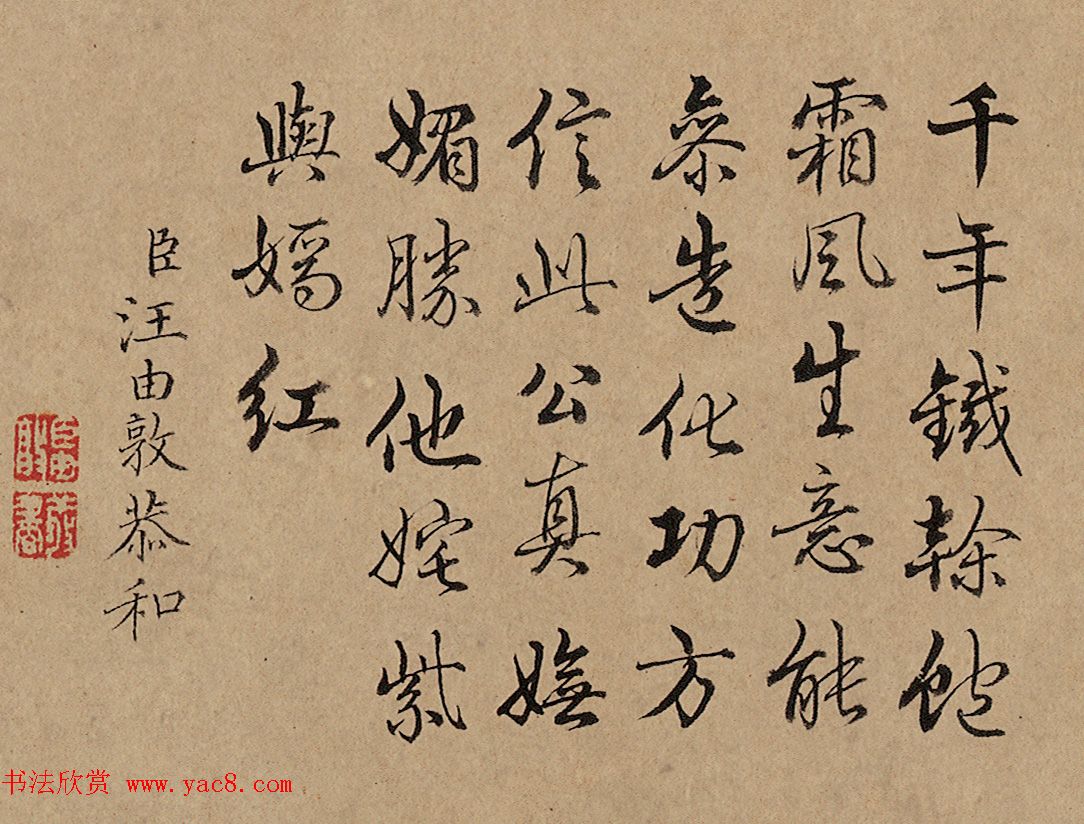 千年鐵榦飽
霜風生意能
參造化功方
信此公真嫵
媚勝他姹紫
與嫣紅
臣汪由敦恭和
书法欣赏 www.yac8.com